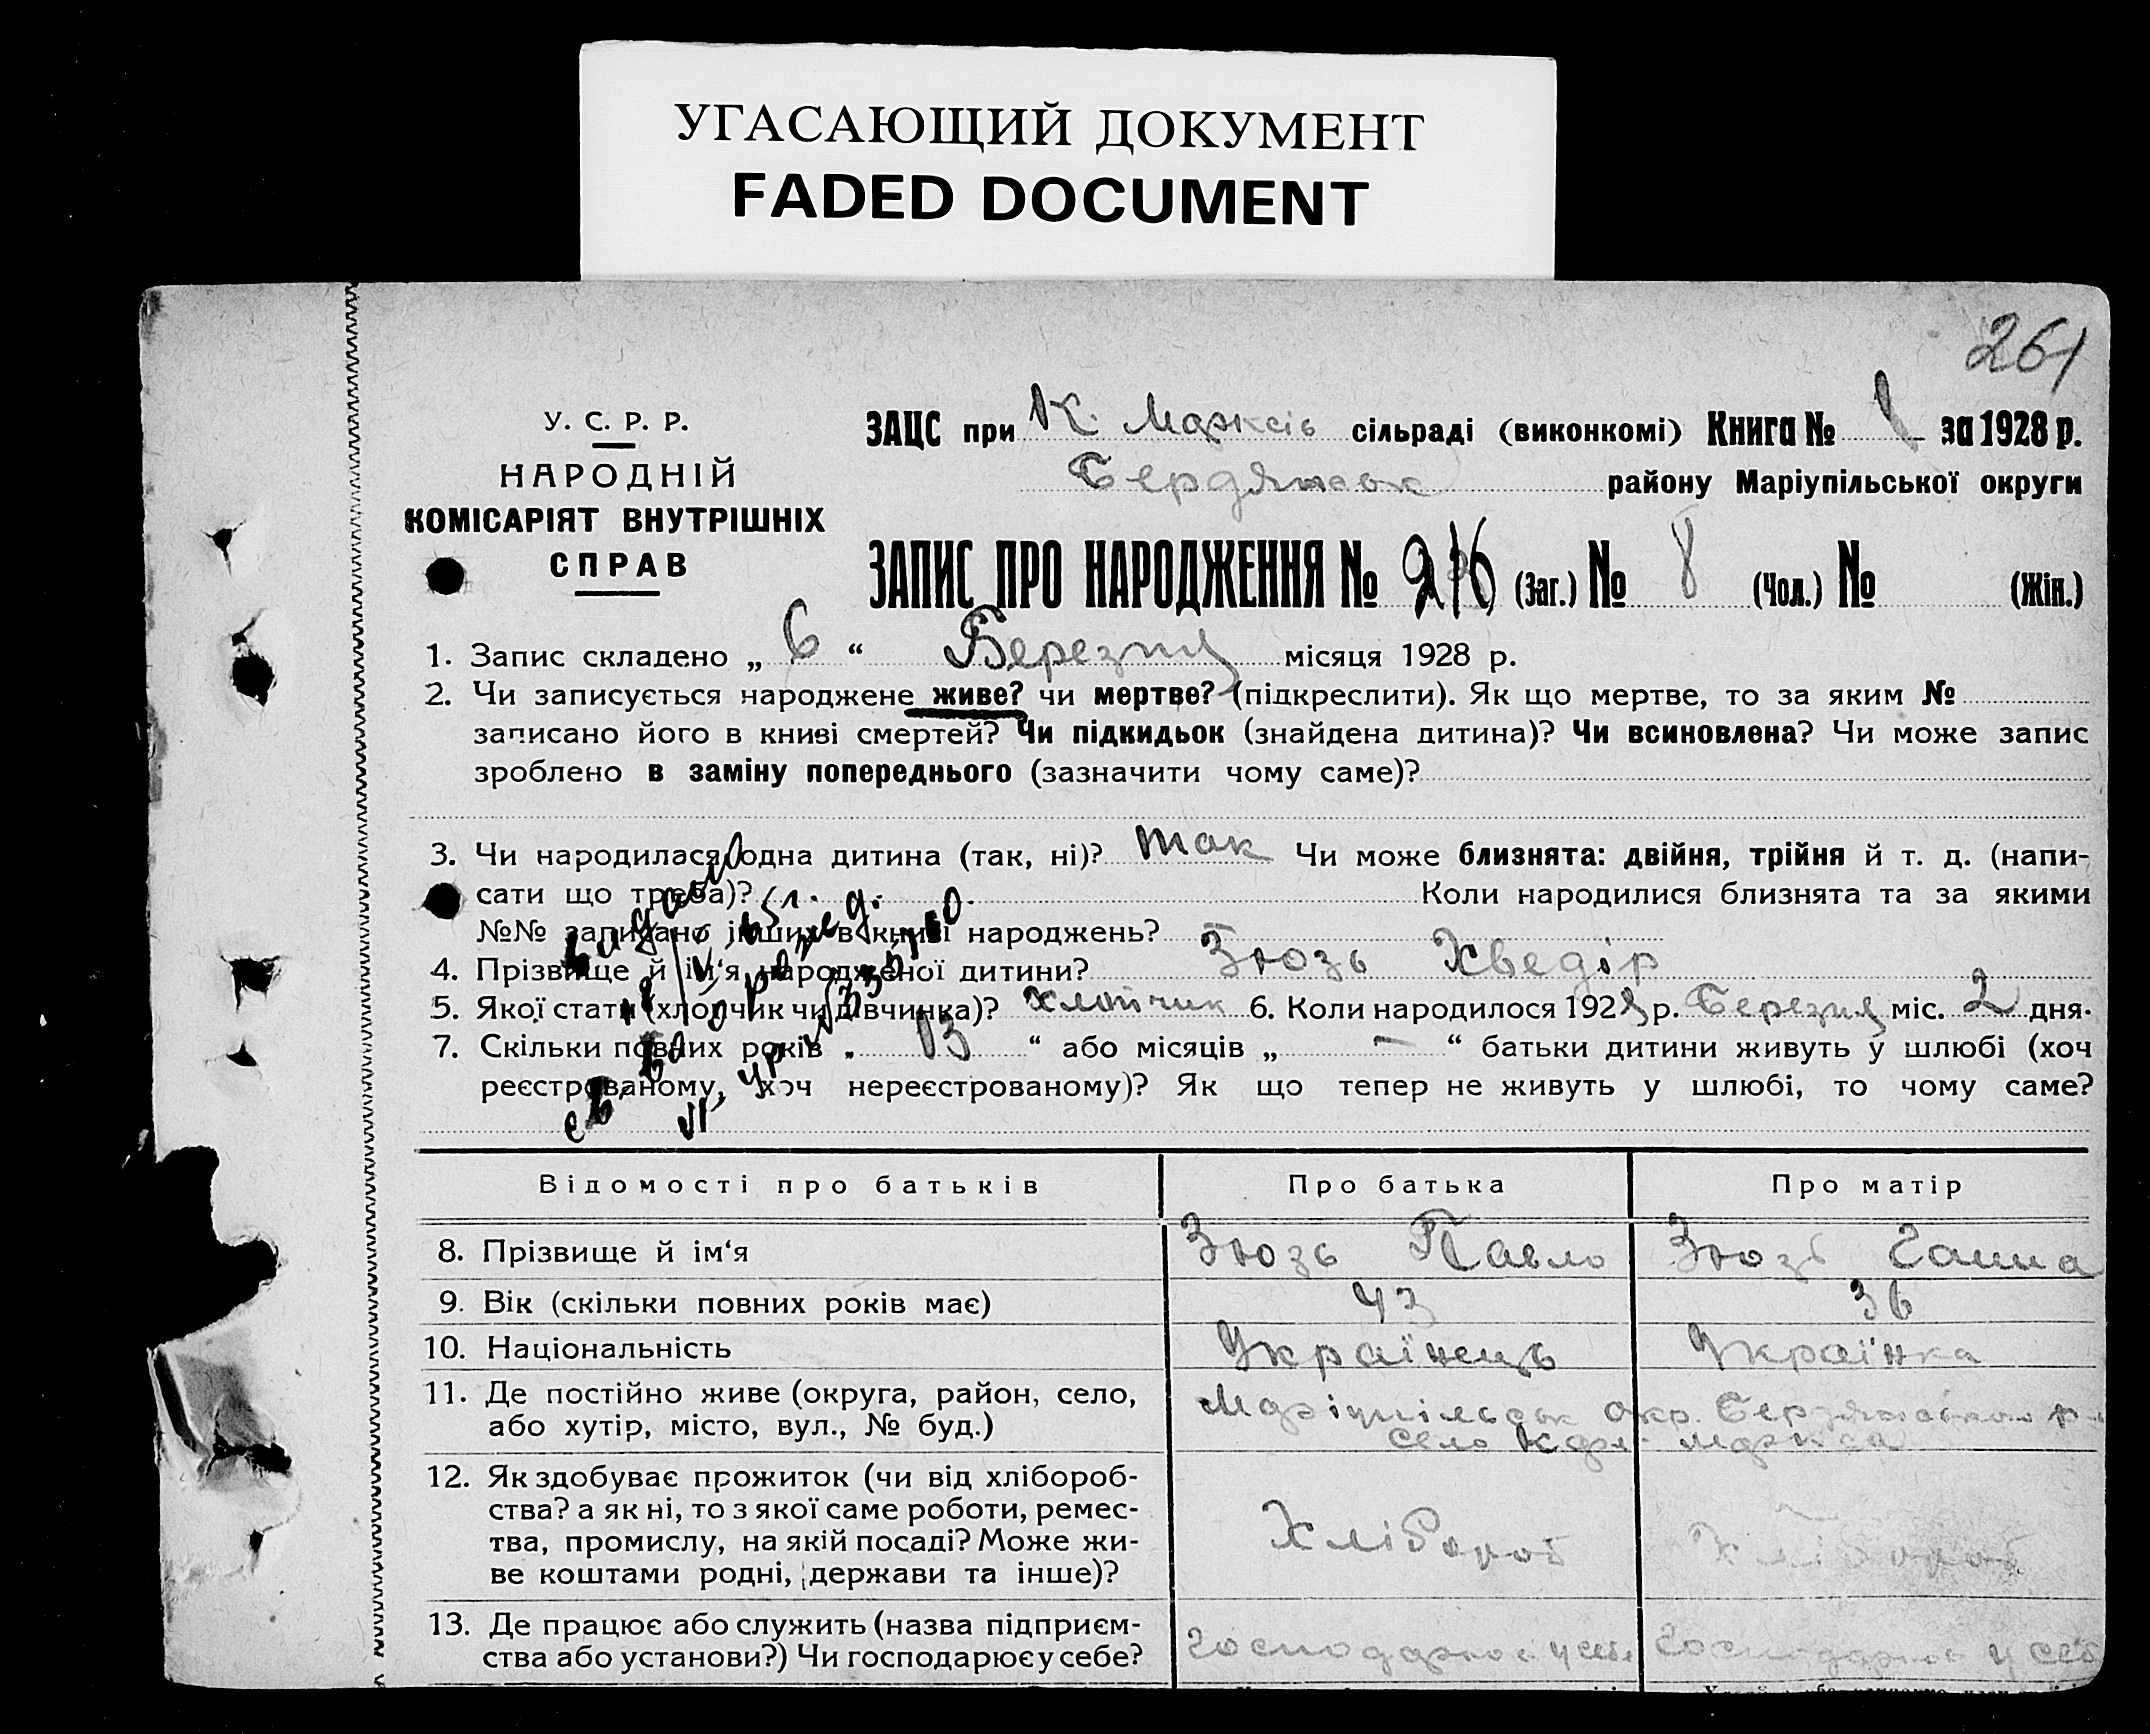 УГАСАЮЩИЙ ДОКУМЕНТ
FADED DOCUMENT
261
У. С. Р. Р.
НАРОДНІЙ
КОМІСАРІЯТ ВНУТРІШНІХ
СПРАВ
ЗАЦС при К. Марксів сільраді (виконкомі) Книга № 1 за 1928 р.
Бердянськ району Маріупільської округи
ЗАПИС ПРО НАРОДЖЕННЯ № (Заг.) № 8 (Чол.) № (Жін.)
1. Запис складено „ 6 “ Березня місяця 1928 р.
2. Чи записується народжене живе? чи мертве? (підкреслити). Як що мертве, то за яким №
записано його в книзі смертей? Чи підкидьок (знайдена дитина)? Чи всиновлена? Чи може запис
зроблено в заміну попереднього (зазначити чому саме)?
3. Чи народилася одна дитина (так, ні)? так Чи може близнята: двійня, трійня й т. д. (напи-
сати що треба)? Коли народилися близнята та за якими
№№ записано інших в книзі народжень?
4. Прізвище й ім‘я народженої дитини? Зюзь Хведір
5. Якої стати (хлопчик чи дівчинка)? хлопчик 6. Коли народилося 1928 р. Березня міс. 2 дня.
7. Скільки повних років „ 13 “ або місяців „ — “ батьки дитини живуть у шлюбі (хоч
реєстрованому, хоч нереєстрованому)? Як що тепер не живуть у шлюбі, то чому саме?
Відомості про батьків Про батька Про матір
8. Прізвище й ім‘я Зюзь Павло Зюзь Ганна
9. Вік (скільки повних років має) 43 36
10. Національність Українець Українка
11. Де постійно живе (округа, район, село, Маріупільськ окр. Бердянського р-
або хутір, місто, вул., № буд.) село Кар. Маркса
12. Як здобуває прожиток (чи від хлібороб-
ства? а як ні, то з якої саме роботи, ремес-
тва, промислу, на якій посаді? Може жи- Хлібороб Хлібороб
ве коштами родні, держави та інше)?
13. Де працює або служить (назва підприєм-
ства або установи?) Чи господарює у себе? Господарює у себе Господарює у себ